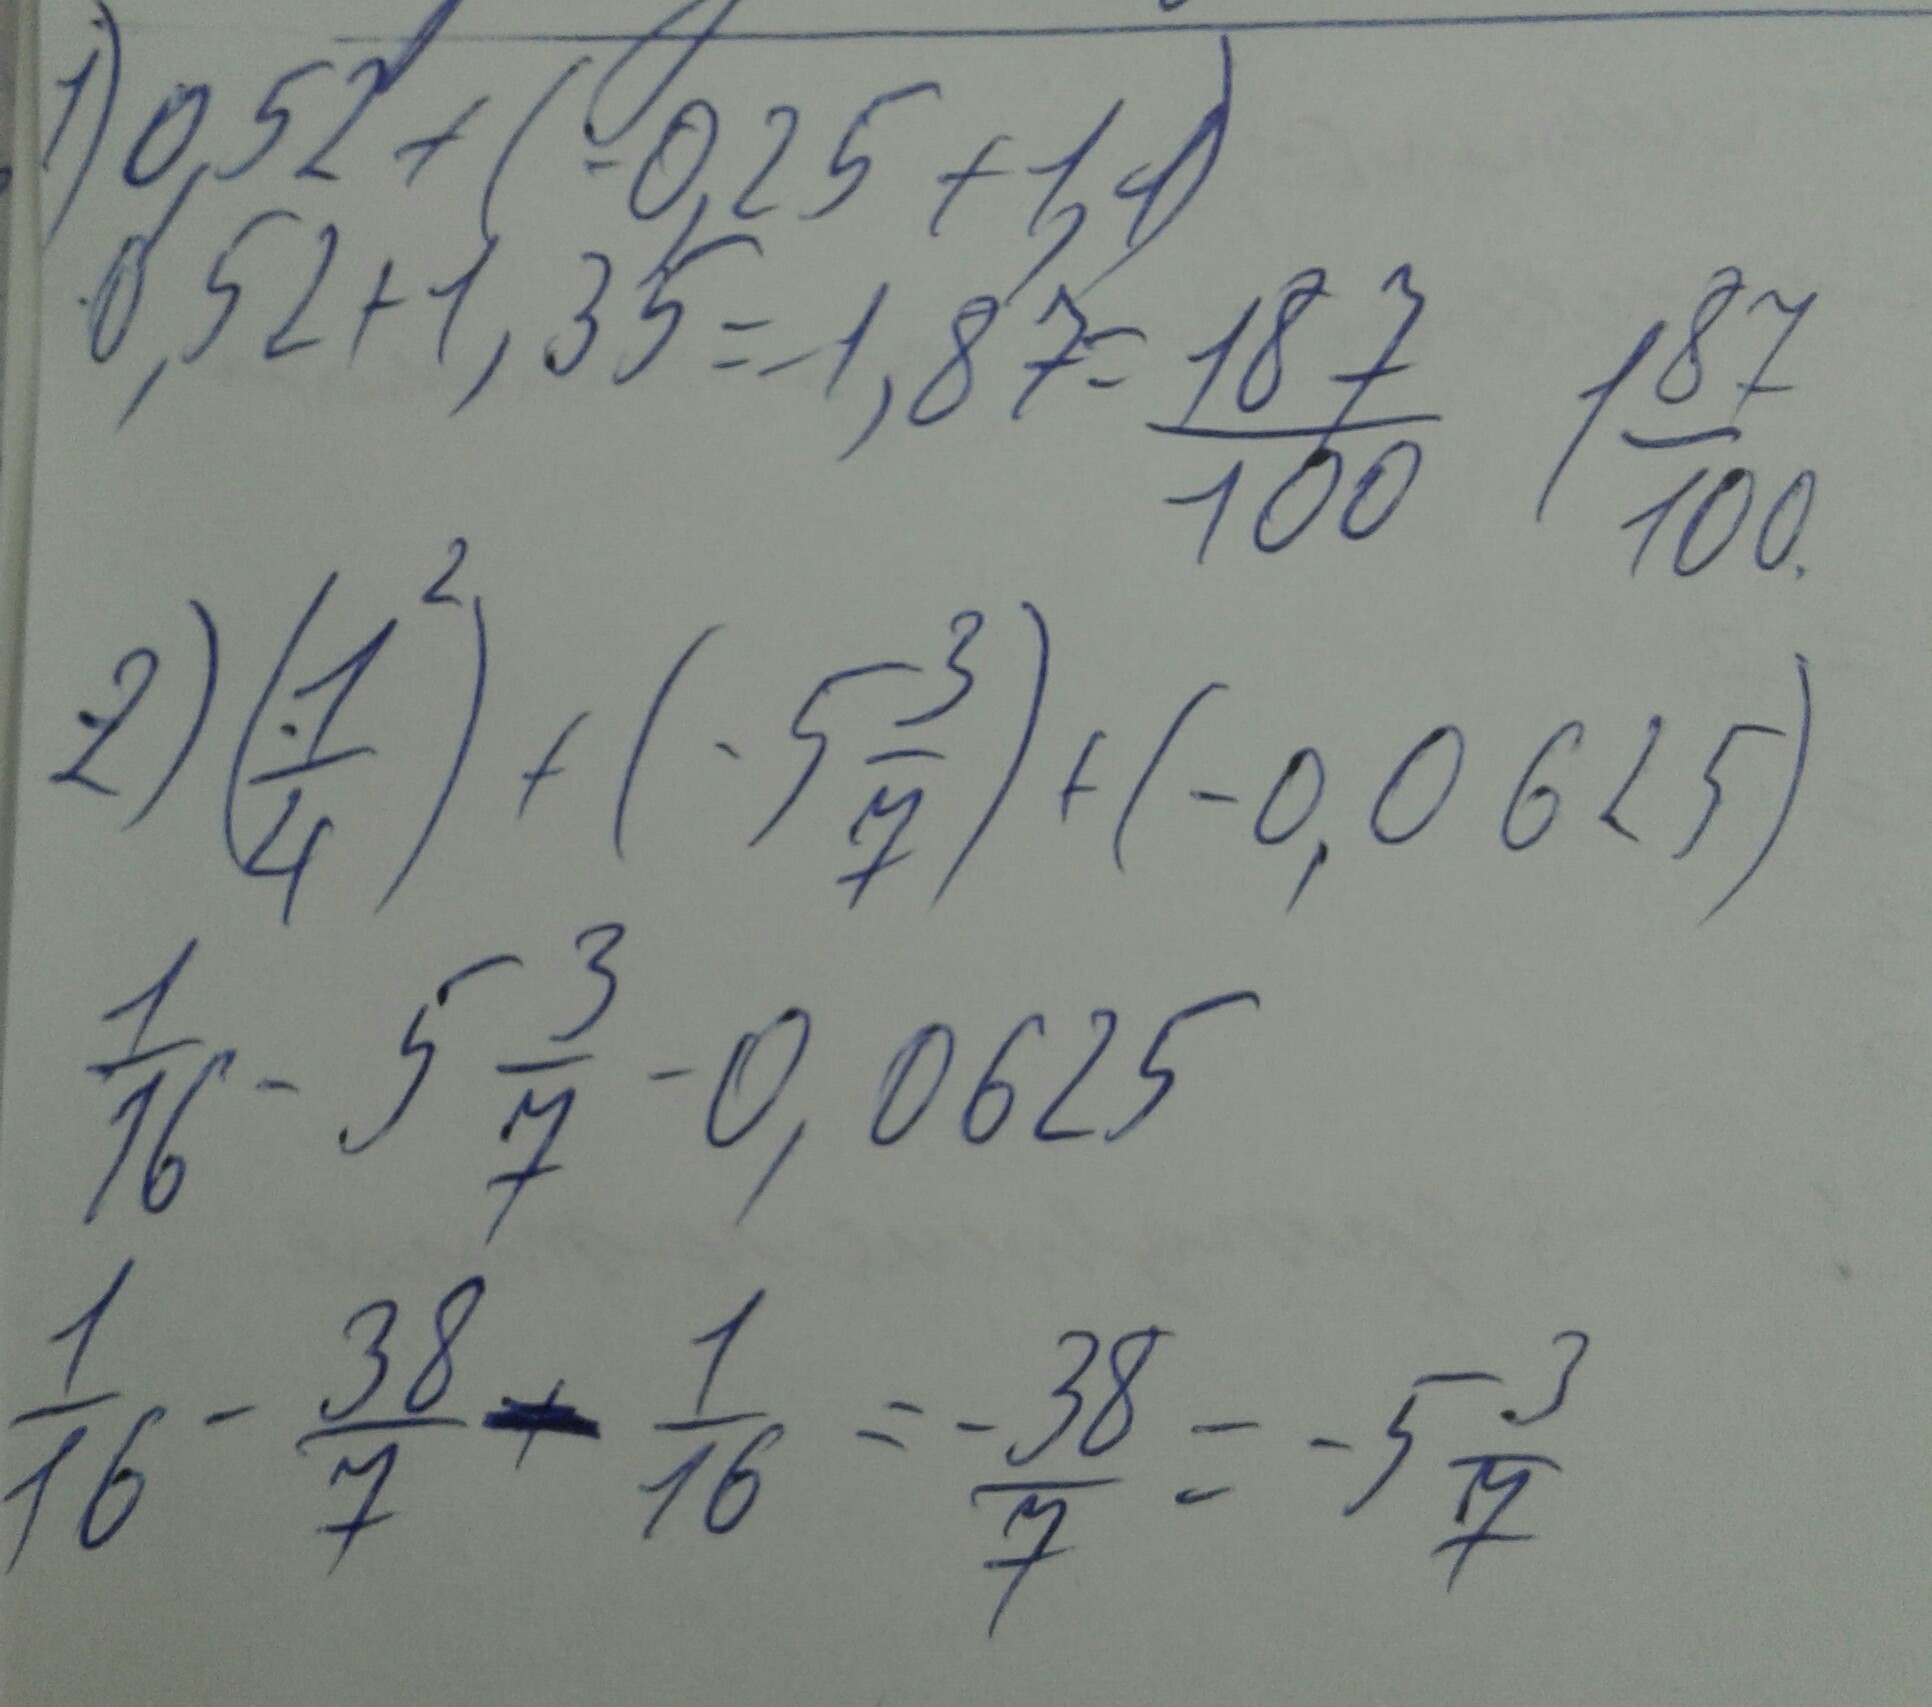 1) 0,52 + (-0,25 + 1,1)
0,52 + 1,35 = 1,87 = 187/100 1 87/100.
2) (1/4²) + (-5 3/7) + (-0,0625)
1/16 - 5 3/7 - 0,0625
1/16 - 38/7 - 1/16 = -38/7 = -5 3/7